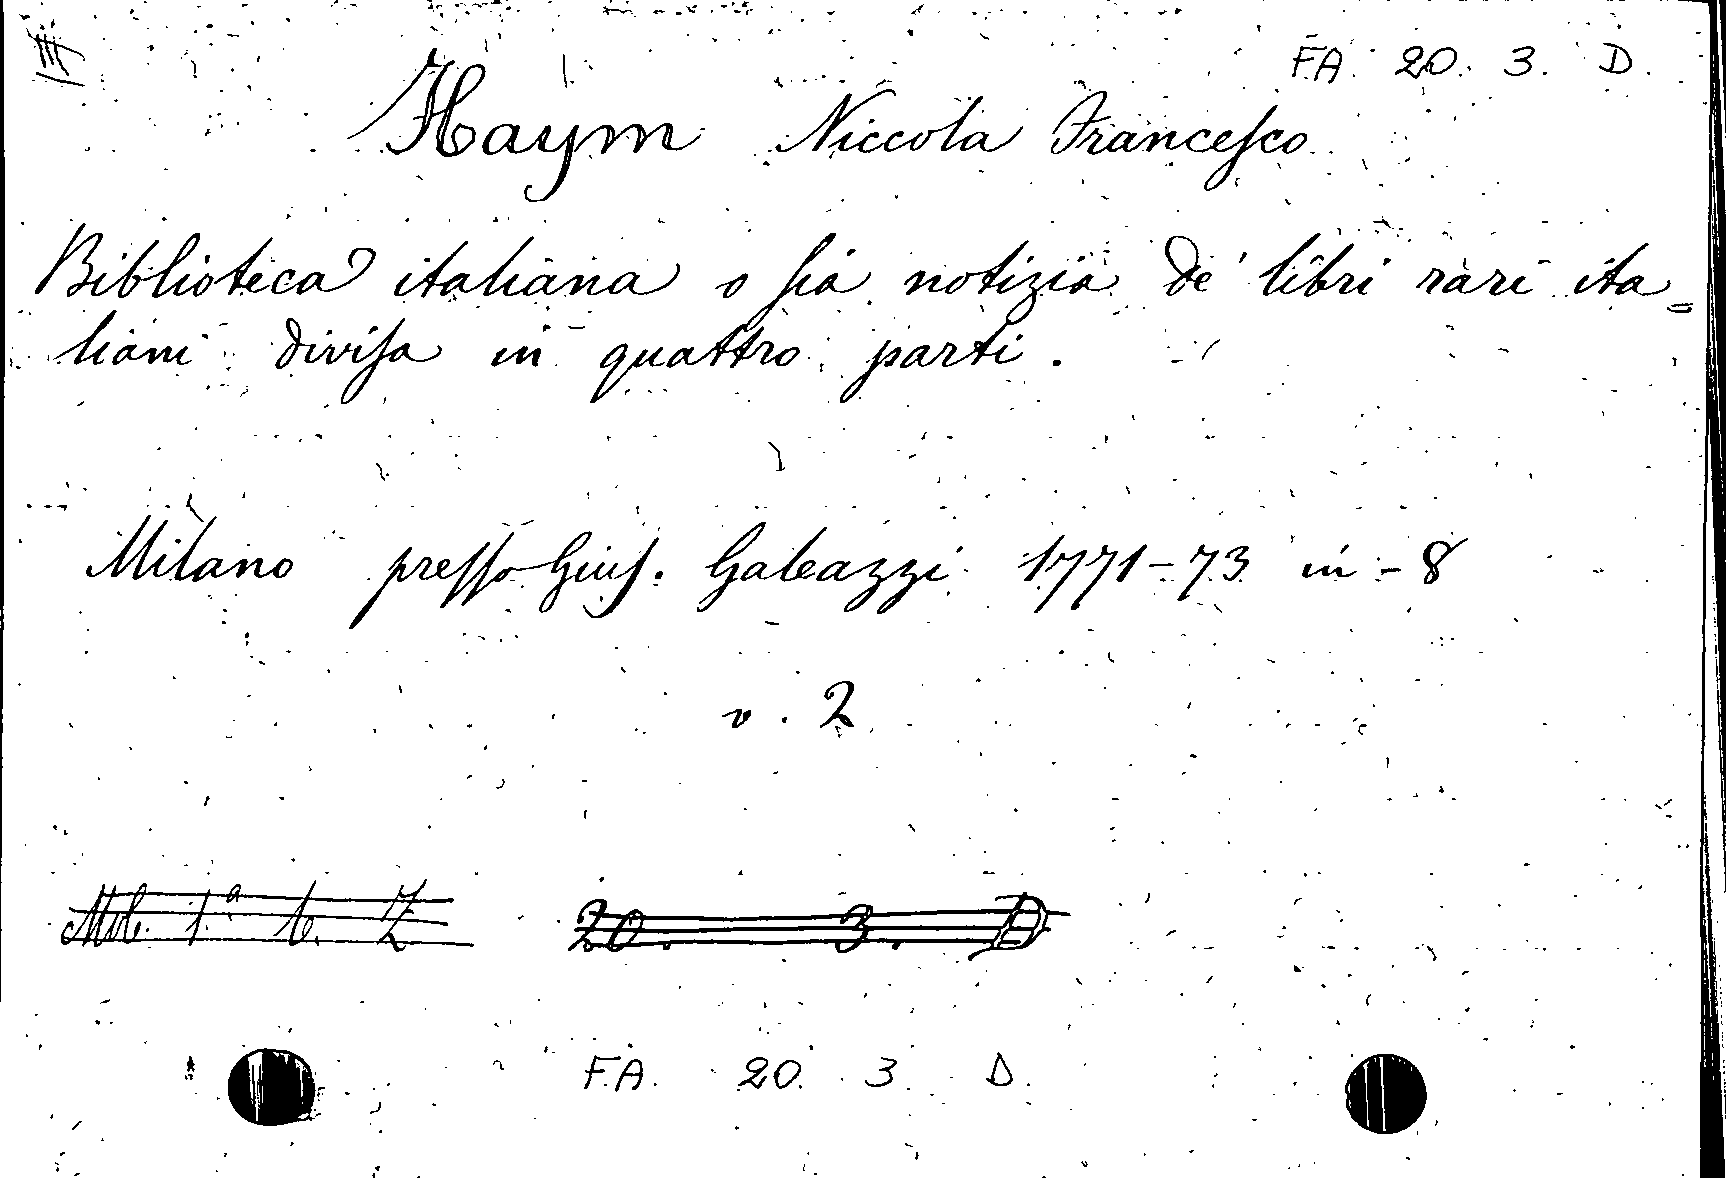 FA. 20. 3. D.
Haym Niccola Francesco
Biblioteca italiana o sia notizia de' libri rari ita=
liani divisa in quattro parti.
Milano presso Gius. Galeazzi 1771-73 in-8
v. 2
Mob. 1.ª b. Z 20. 3. D
F.A. 20. 3 D.